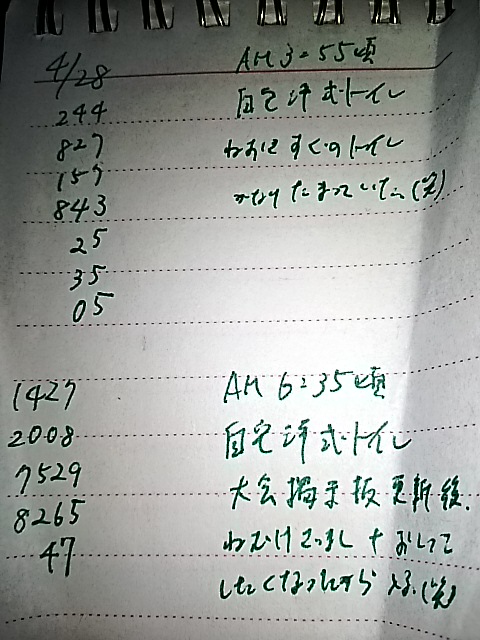 4/28 AM 3:55頃
244 自宅洋式トイレ
827 ねおきすぐのトイレ
157 かなりたまっていた。(笑)
843
25
35
05
1427 AM 6:35頃
2008 自宅洋式トイレ
7529 大会掲示板更新後、
8265 ねむけざまし+おしっこ
47 したくなったから (笑)